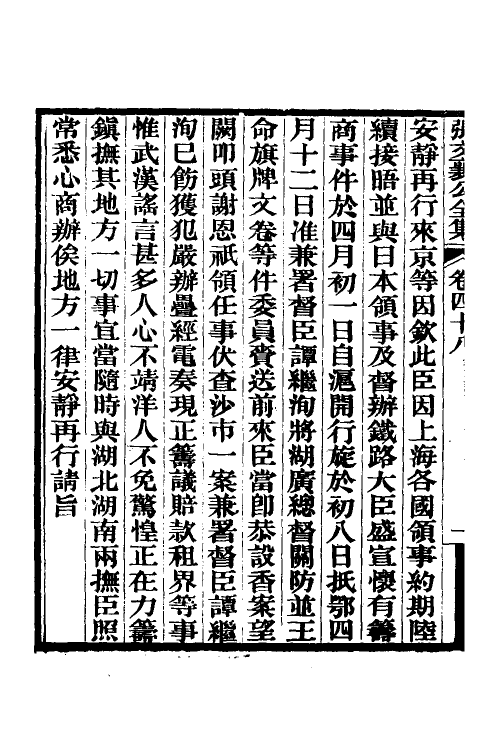 張文襄公全集 卷四十八 一
安靜再行來京等因欽此臣因上海各國領事約期陸
續接晤並與日本領事及督辦鐵路大臣盛宣懷有籌
商事件於四月初一日自滬開行旋於初八日抵鄂四
月十二日准兼署督臣譚繼洵將湖廣總督關防並王
命旗牌文卷等件委員賫送前來臣當卽恭設香案望
闕叩頭謝恩祇領任事伏查沙市一案兼署督臣譚繼
洵已飭獲犯嚴辦疊經電奏現正籌議賠款租界等事
惟武漢謠言甚多人心不靖洋人不免驚惶正在力籌
鎮撫其地方一切事宜當隨時與湖北湖南兩撫臣照
常悉心商辦俟地方一律安靜再行請旨